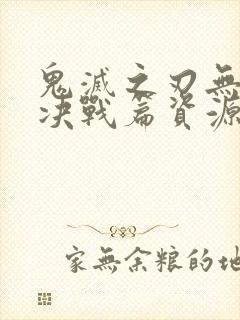 鬼滅之刃無
决戰篇資源
家無余粮的地